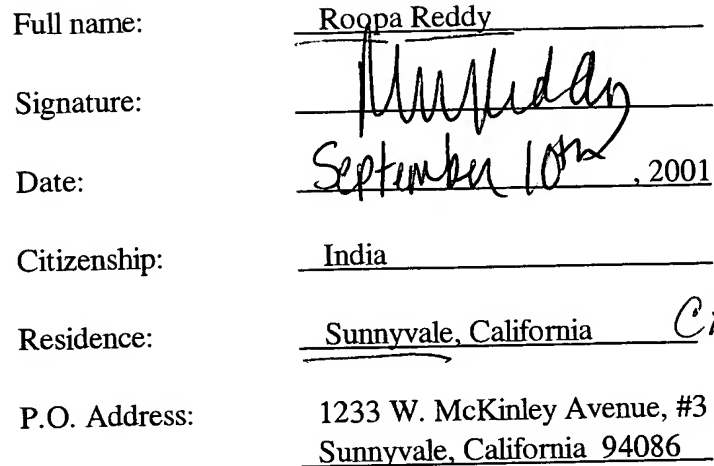 Full name: Roopa Reddy
Signature:
Date: September 10th, 2001
Citizenship: India
Residence: Sunnyvale, California
P.O. Address: 1233 W. McKinley Avenue, #3
Sunnyvale, California 94086